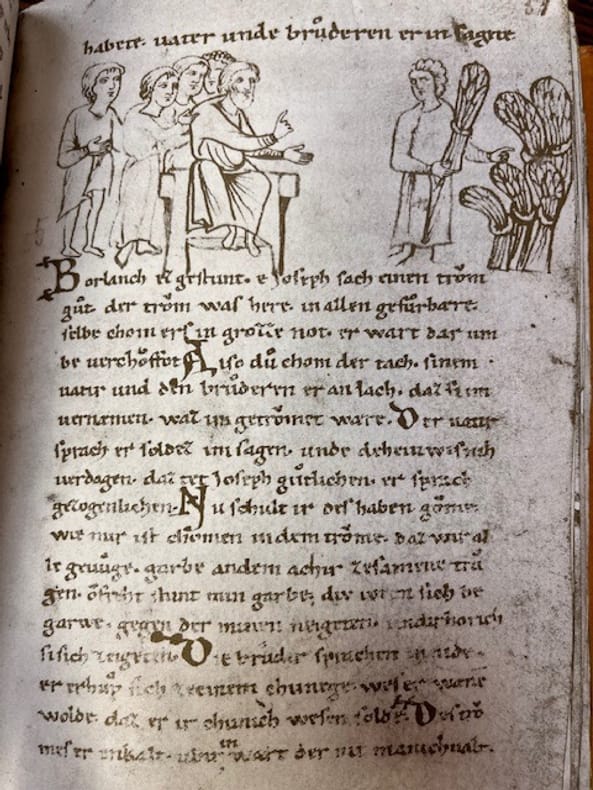 habete. uater unde brůderen er in sagite
Borlanch er gestunt. e Joseph sach einen trŏm
gůt. der trŏm was here. in allen gefůrbære.
selbe chom ers in grozze not. er wart dar um
be verchŏffot Also dů chom der tach. sinem
vatir und den brůderen er an iach. daz si im
vernamen. waz im getrŏmet ware. Der uatir
sprach er soldez im sagen. unde deheinwis nih
verdagen. daz tet Joseph gůtlichen. er sprach
gezogenlichen. Nu schult ir des haben gŏme.
wie mir ist chomen in dem trŏme. daz wir al
le gevůge. garbe an dem achir zesamene trů
gen. ŏfreht stunt min garbe; die iwren sich be
garwe. gegen der minen neigeten.
si sich zeigeten. Die brůdir sprachen in nide.
er erhůp sich zeeinem chunege. weser wane
wolde. daz er ir chunich wesen solde. Des trŏ
mes er enkalt. ubir in wart der nit manichualt.